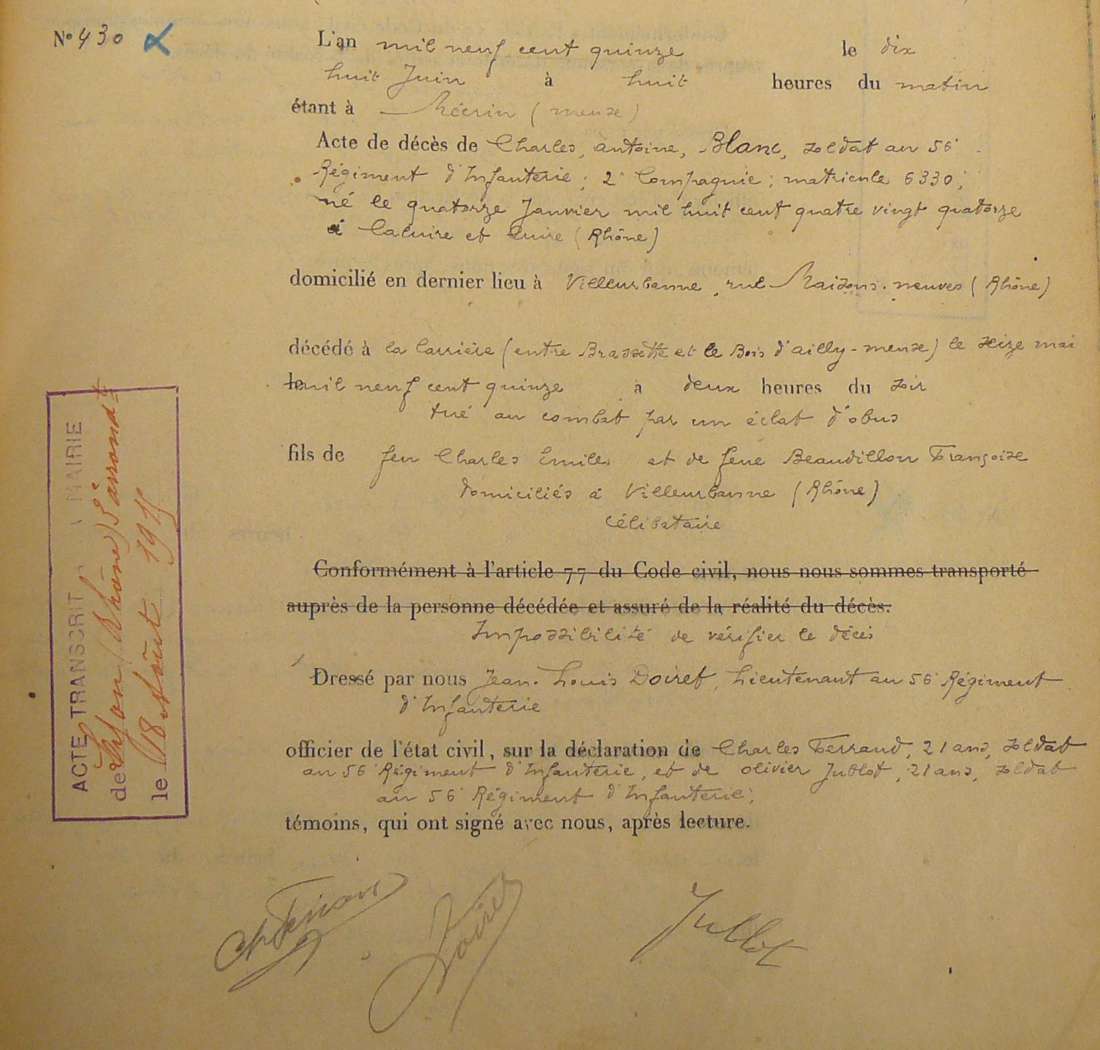 N° 430
L'an mil neuf cent quinze le dix
huit Juin à huit heures du matin
étant à Mécrin (meuse)
Acte de décès de Charles, antoine, Blanc, soldat au 56e
Régiment d'Infanterie; 2e Compagnie; matricule 6330;
né le quatorze Janvier mil huit cent quatre vingt quatorze
à Caluire et Cuire (Rhône)
domicilié en dernier lieu à Villeurbanne, rue Maisons-neuves (Rhône)
décédé à la Carrière (entre Brassette et le Bois d'ailly-meuse) le seize mai
le mil neuf cent quinze à deux heures du soir
tué au combat par un éclat d'obus
fils de feu Charles Emile et de feue Beaudillon Françoise
domiciliés à Villeurbanne (Rhône)
célibataire
Conformément à l'article 77 du Code civil, nous nous sommes transporté
auprès de la personne décédée et assuré de la réalité du décès.
Impossibilité de vérifier le décès
Dressé par nous Jean-Louis Doiret, Lieutenant au 56e Régiment
d'Infanterie
officier de l'état civil, sur la déclaration de Charles Ferraud, 21 ans, soldat
au 56e Régiment d'Infanterie, et de olivier Jublot, 21 ans, soldat
au 56e Régiment d'Infanterie;
témoins, qui ont signé avec nous, après lecture.
Jublot
ACTE TRANSCRIT MAIRIE
de Lyon (Rhône) 3e arrondt
le 18 Août 1915